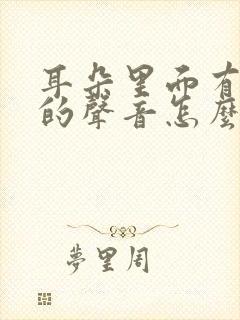 耳朵里面有
的聲音怎麼
夢里周